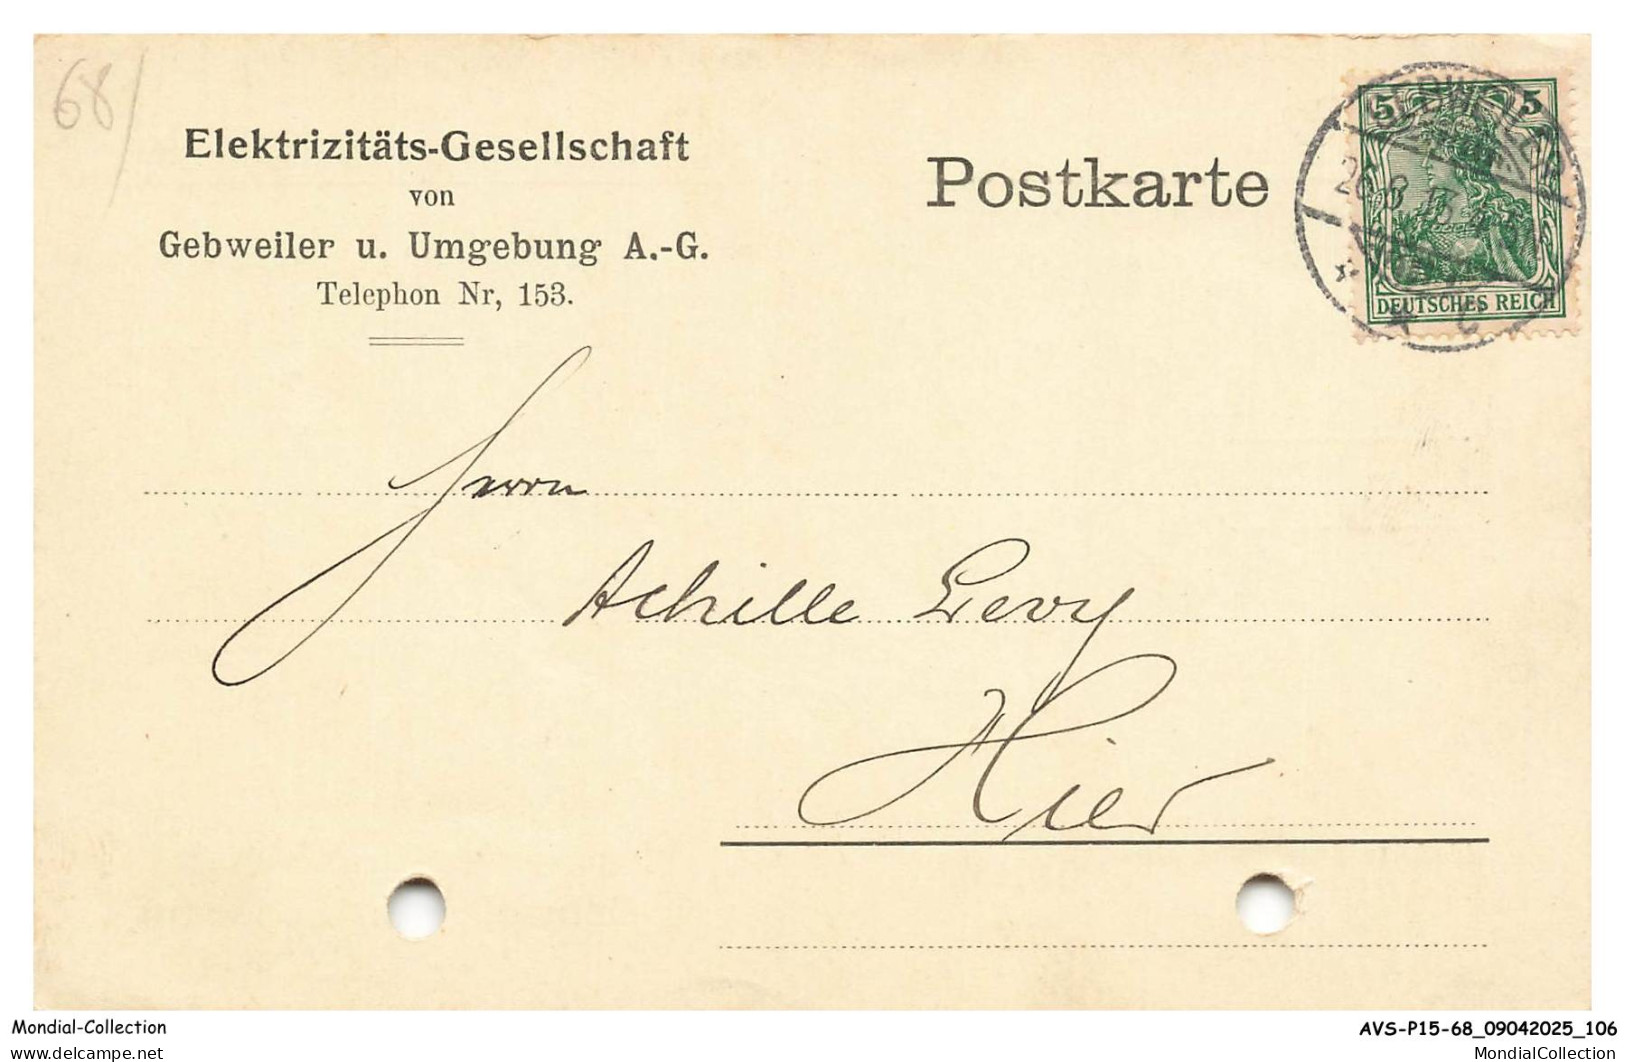 68/
Elektrizitäts-Gesellschaft
von
Gebweiler u. Umgebung A.-G.
Telephon Nr, 153.
Postkarte
5 5
DEUTSCHES REICH
Herrn
Achille Levy
Hier
Mondial-Collection
www.delcampe.net
AVS-P15-68_09042025_106
MondialCollection